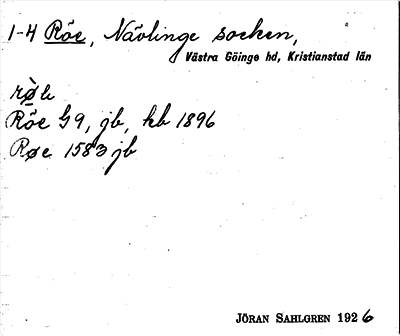 1-4 Röe, Nävlinge socken,
Västra Göinge hd, Kristianstad län
Röe G9, jb, kb 1896
Røe 1583 jb
JÖRAN SAHLGREN 1926